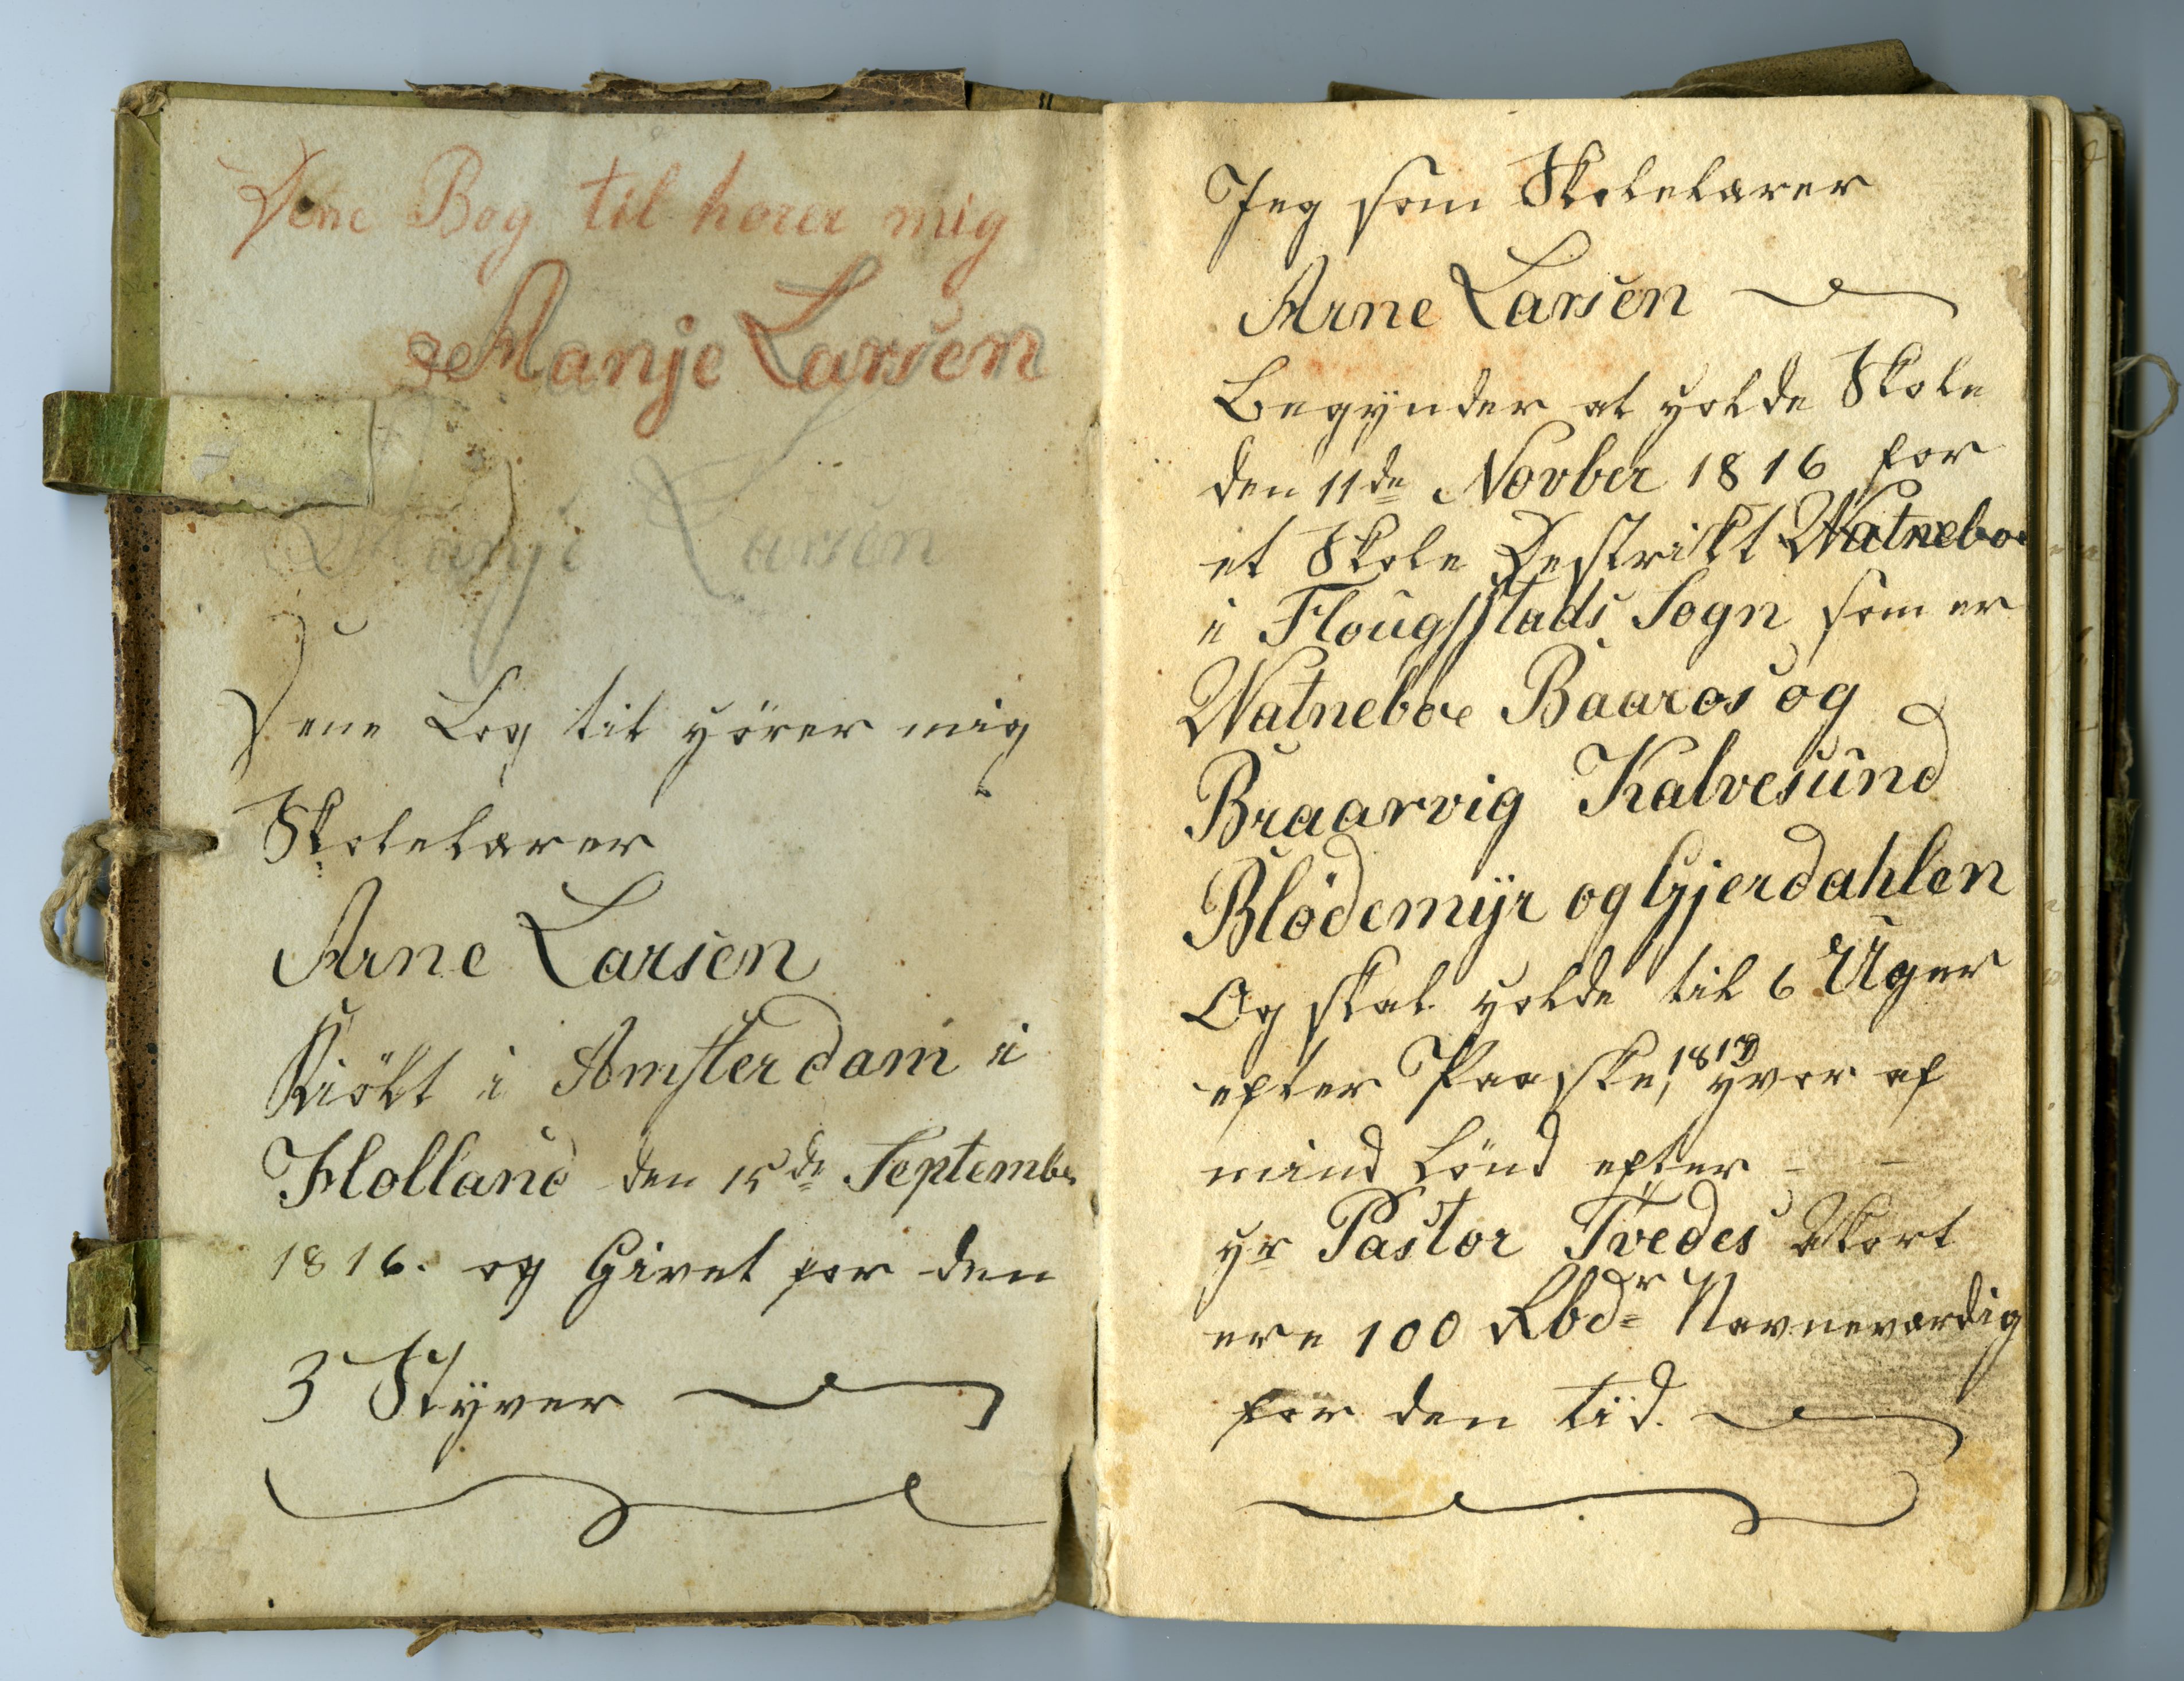 Dene Bog til hører mig
Manje Larsen
Manje Larsen
Dene Bog til hører mig
Skolelærer
Arne Larsen
Kiökt i Amsterdam i
Holland den 15de Septembr
1816. og Givet for den
3 Styver
Jeg som Skolelærer
Arne Larsen
Begÿnder at holde Skole
den 11de Novber 1816 for
et Skole Destrikt Watneboe
i Hougsstads Sogn som er
Watneboe Baaros og
Braarvig Kalvesund
Blödemÿr og Gjerdahlen
Og skal holde til 6 Uger
efter Paaske, hvor af
mind Lönd efter
hr Pastor Tvedes
ere 100 Rbdr Navneværdig
for den tid.